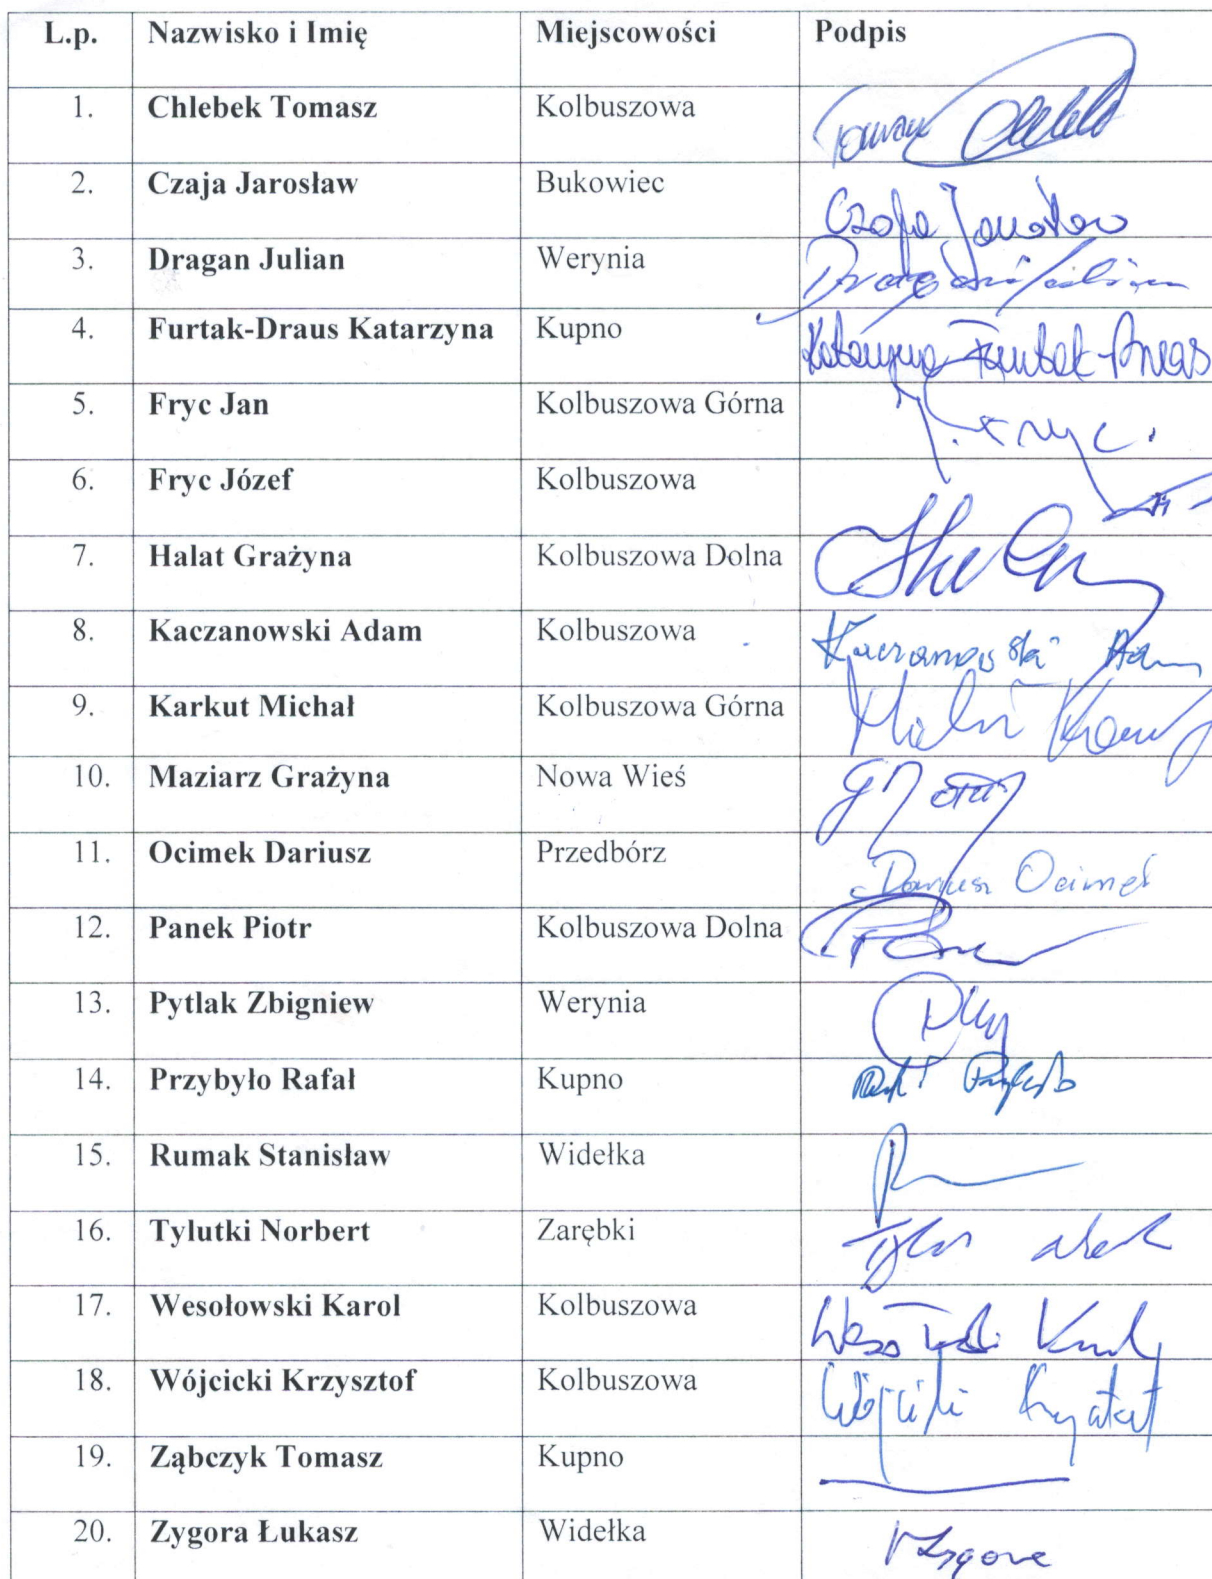 L.p. Nazwisko i Imię Miejscowości Podpis
1. Chlebek Tomasz Kolbuszowa Tomasz
2. Czaja Jarosław Bukowiec Czaja Jarosław
3. Dragan Julian Werynia Dragan Julian
4. Furtak-Draus Katarzyna Kupno Katarzyna Furtak-Draus
5. Fryc Jan Kolbuszowa Górna J. Fryc
6. Fryc Józef Kolbuszowa
7. Halat Grażyna Kolbuszowa Dolna
8. Kaczanowski Adam Kolbuszowa Kaczanowski Adam
9. Karkut Michał Kolbuszowa Górna
10. Maziarz Grażyna Nowa Wieś
11. Ocimek Dariusz Przedbórz Dariusz Ocimek
12. Panek Piotr Kolbuszowa Dolna
13. Pytlak Zbigniew Werynia
14. Przybyło Rafał Kupno
15. Rumak Stanisław Widełka
16. Tylutki Norbert Zarębki
17. Wesołowski Karol Kolbuszowa
18. Wójcicki Krzysztof Kolbuszowa Wójcicki Krzysztof
19. Ząbczyk Tomasz Kupno
20. Zygora Łukasz Widełka Zygora